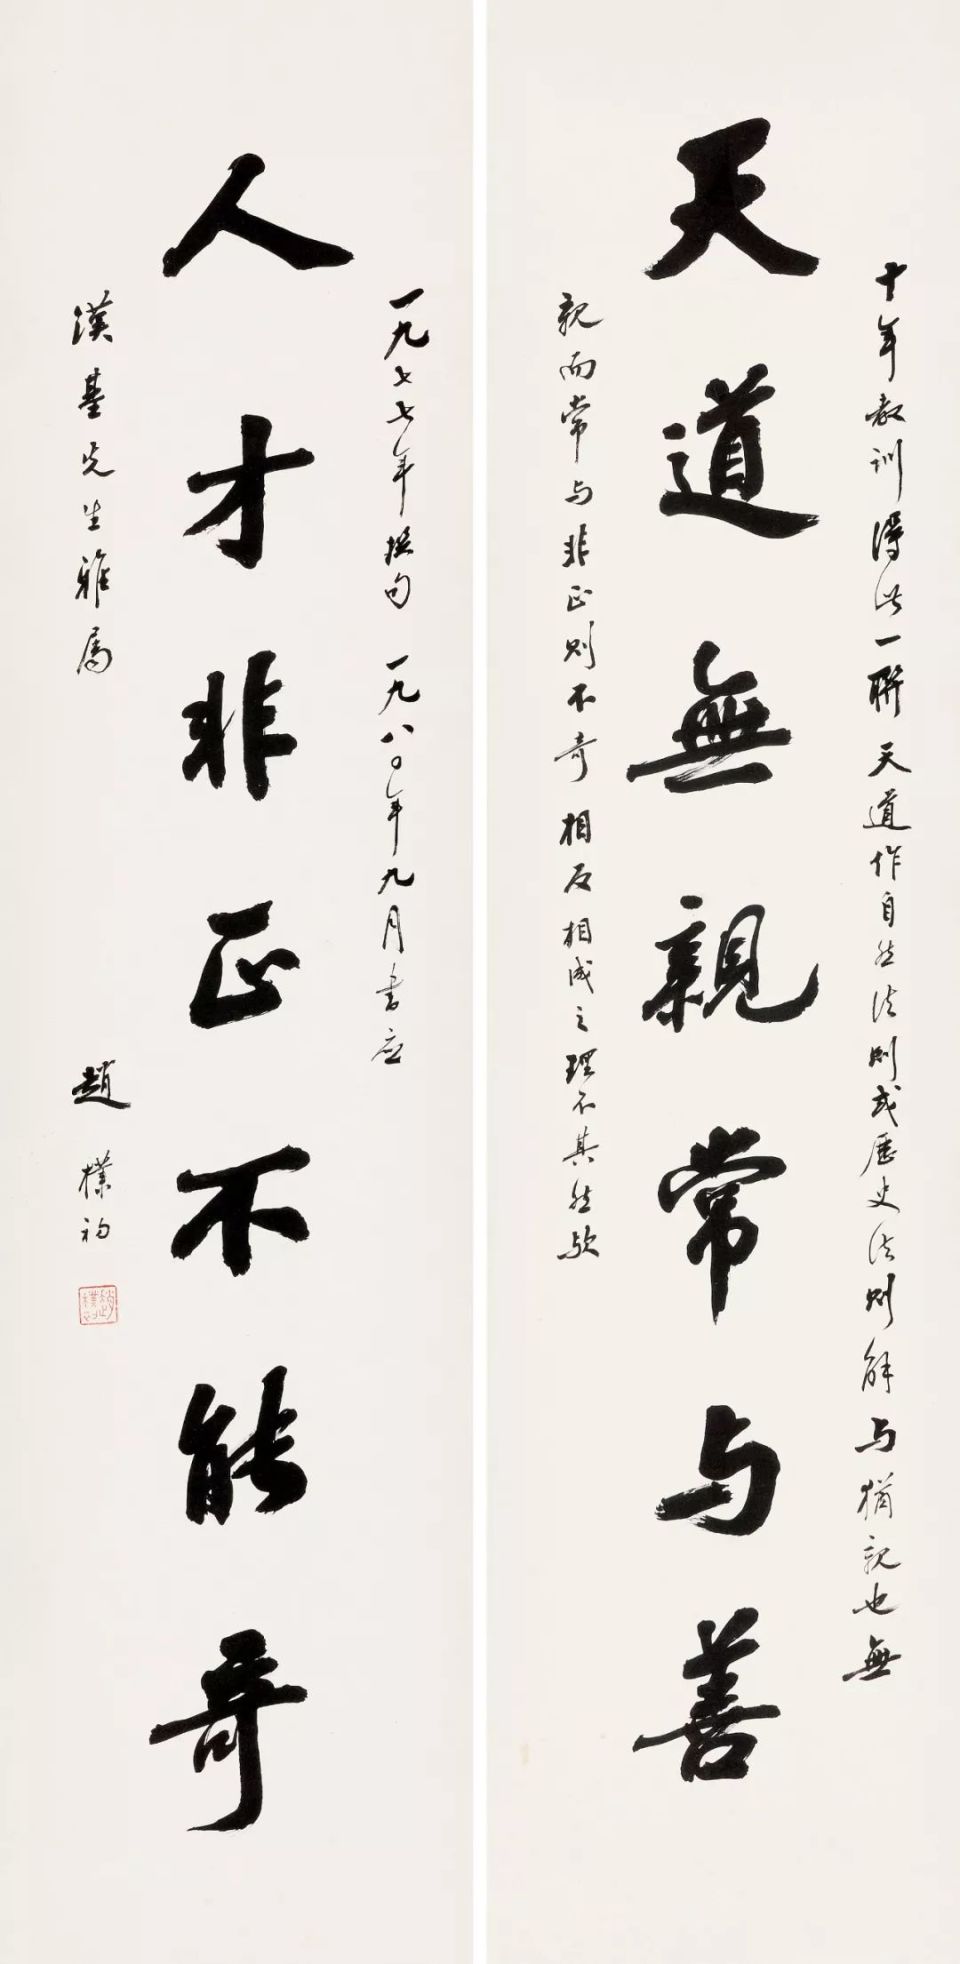 天道無親常与善
十年教训得此一聯 天道作自然法则或歷史法则解 与犹親也 無
親而常与 非正则不奇 相反相成之理 不其然欤
人才非正不能奇
一九七七年撰句 一九八〇年九月書应
漢基先生雅属
趙樸初